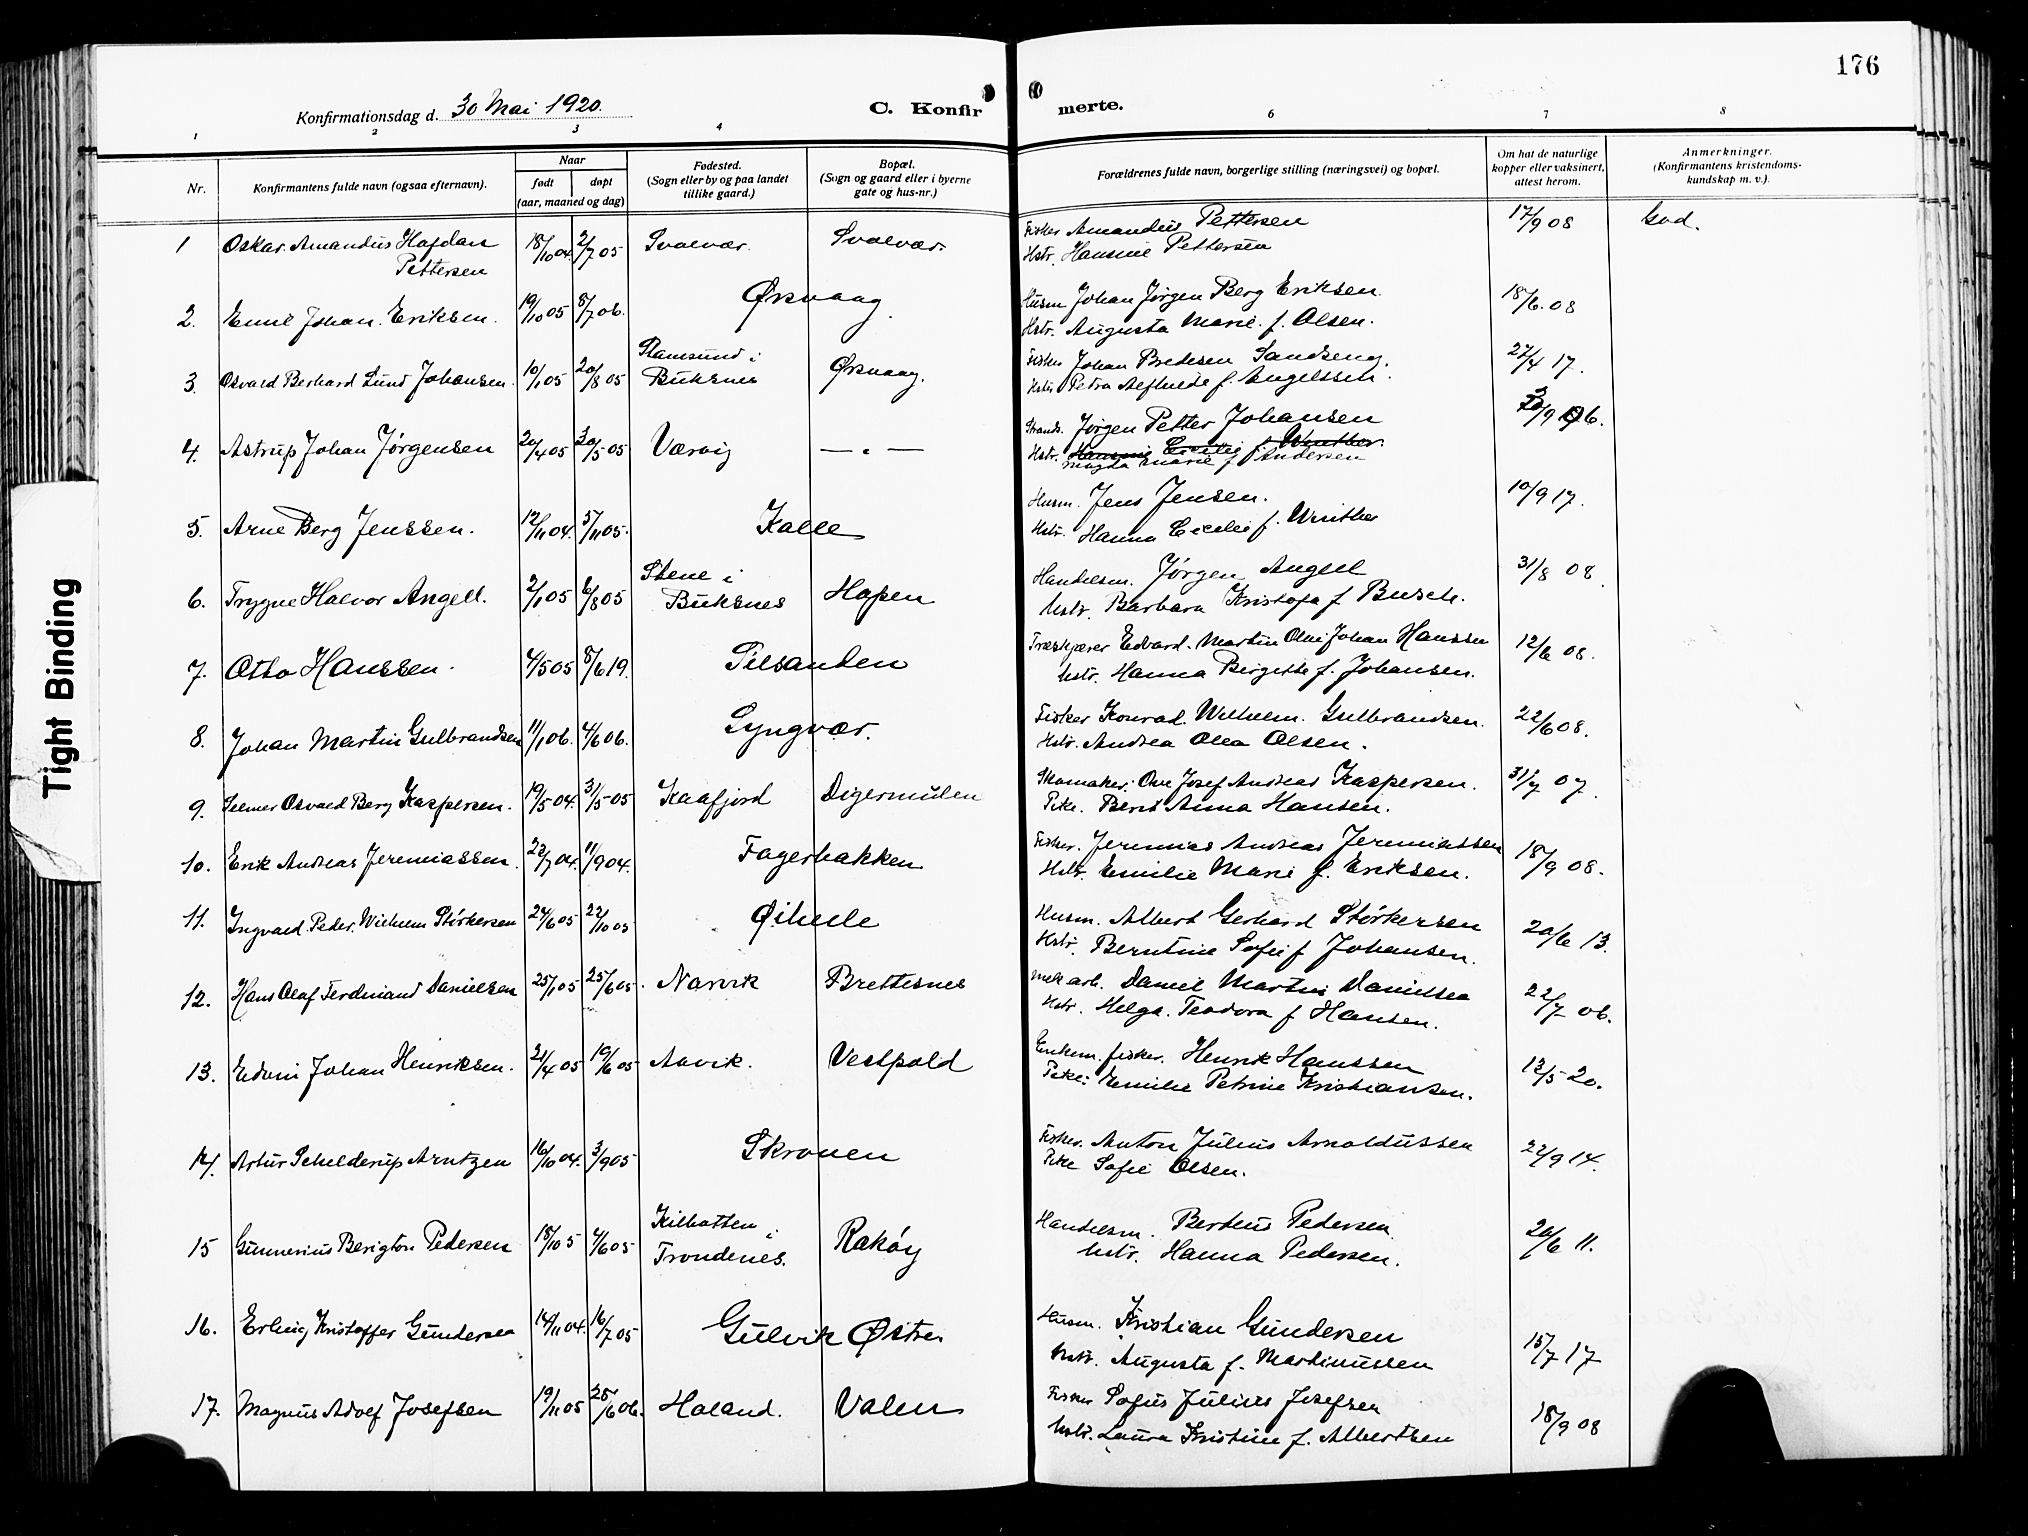 176
Konfirmationsdag d. 30 Mai 1920.
C. Konfir
merte.
1 2 3 4 6 7 8
Nr.
Konfirmantens fulde navn (ogsaa efternavn).
Naar
født døpt
(aar, maaned og dag)
Fødested.
(Sogn eller by og paa landet
tillike gaard.)
Bopæl.
(Sogn og gaard eller i byerne
gate og hus-nr.)
Forældrenes fulde navn, borgerlige stilling (næringsvei) og bopæl.
Om hat de naturlige
kopper eller vaksinert,
attest herom.
Anmerkninger.
(Konfirmantens kristendoms-
kundskap m. v.).
1 Oskar Amandus Hafdan Pettersen 18/10 04. 2/7 05 Svolvær. Svolvær. Fisker Amandus Pettersen 17/9 08 God.
Hstr. Hansine Pettersen
2. Emil Johan Eriksen. 19/10 05 8/7 06. Ørsvaag. Husm Johan Jørgen Berg Eriksen. 18/6. 08
Hstr. Augusta Marie f. Olsen.
3. Osvald Berhard Lund Johansen. 10/1 05 20/8 05 Stamsund i Buksnes Ørsvaag. Fisker Johan Bredesen Sandseng. 27/4 17.
Hstr Petra Alfhilde f. Engelssen.
4. Astrup Johan Jørgensen 20/4 05 30/5 05 Værvig — " — Strands. Jørgen Petter Johansen /9 06.
Hstr. Hansine Cecilie f. Winther.
Magda Marie f Andersen
5. Arne Berg Jenssen. 12/11 04. 5/11 05. Kalle Husm. Jens Jensen. 10/9 17.
Hstr. Hanna Cecilie f. Winther
6. Trygve Halvor Angell. 2/1 05 6/8 05 Stene i Buksnes Hopen Handelsm. Jørgen Angell 31/8 08.
hstr. Barbara Kristofa f Busch.
7. Otto Hanssen. 4/5 05 8/6 19. Silsanden Træskjærer Edvard Martin Olai Johan Hanssen 12/6 08.
hstr. Hanna Birgitte f. Johansen.
8. Johan Martin Gulbrandsen 11/1 06. 4/6 06. Lyngvær. Fisker Konrad Wilhelm Gulbrandsen. 22/6 08.
Hstr. Andrea Olea Olsen.
9. Selmer Osvald Berg Kaspersen. 19/5 04. 31/5 05 Kaafjord Digermulen Skomaker. Ove Josef Andreas Kaspersen. 31/7 07.
Pike. Berit Anna Hansen.
10. Erik Andreas Jeremiassen. 22/7 04. 11/9 04. Fagerbakken Fisker. Jeremias Andreas Jeremiassen 18/9 08.
Hstr. Emilie Marie f. Eriksen.
11. Ingvald Peder Wilhelm Störkersen 24/6 05 22/10 05 Øihelle Husm. Albert Gerhard Störkersen 20/6 13.
Hstr. Berntine Sofie f Johansen.
12. Hans Olaf Ferdinand Danielsen 25/1 05 25/6 05. Narvik Brettesnes Daniel Martin Danielsen 22/7 06.
Hstr. Helga Teodora f Hansen.
13. Edvin Johan Henriksen. 21/4 05 19/6 05 Aavik. Vestpold Enkem. fisker. Henrik Hanssen 12/5 20.
Pike: Emilie Petrine Kristiansen.
14. Artur Schelderup Arntzen 16/10 04. 3/9 05 Skroven Fisker. Anton Julius Arnoldussen 22/9 14.
Pike Sofie Olsen.
15 Gunnerius Berigton Pedersen 18/1 05 4/6 05 Kilbotten i Trondenes. Rakøy Handelsm. Berteus Pedersen 20/6 11.
hstr. Hanna Pedersen.
16. Erling Kristoffer Gundersen 14/11 04. 16/7 05 Gulvik Østre Husm. Kristian Gundersen 15/7 17
hstr. Augusta f. Martinussen
17. Magnus Adolf Josefsen 19/11 05 25/6 06. Holand. Valen Fisker Sofus Julius Josefsen 18/9 08
hstr. Laura Kristine f. Albertsen
Tight Binding